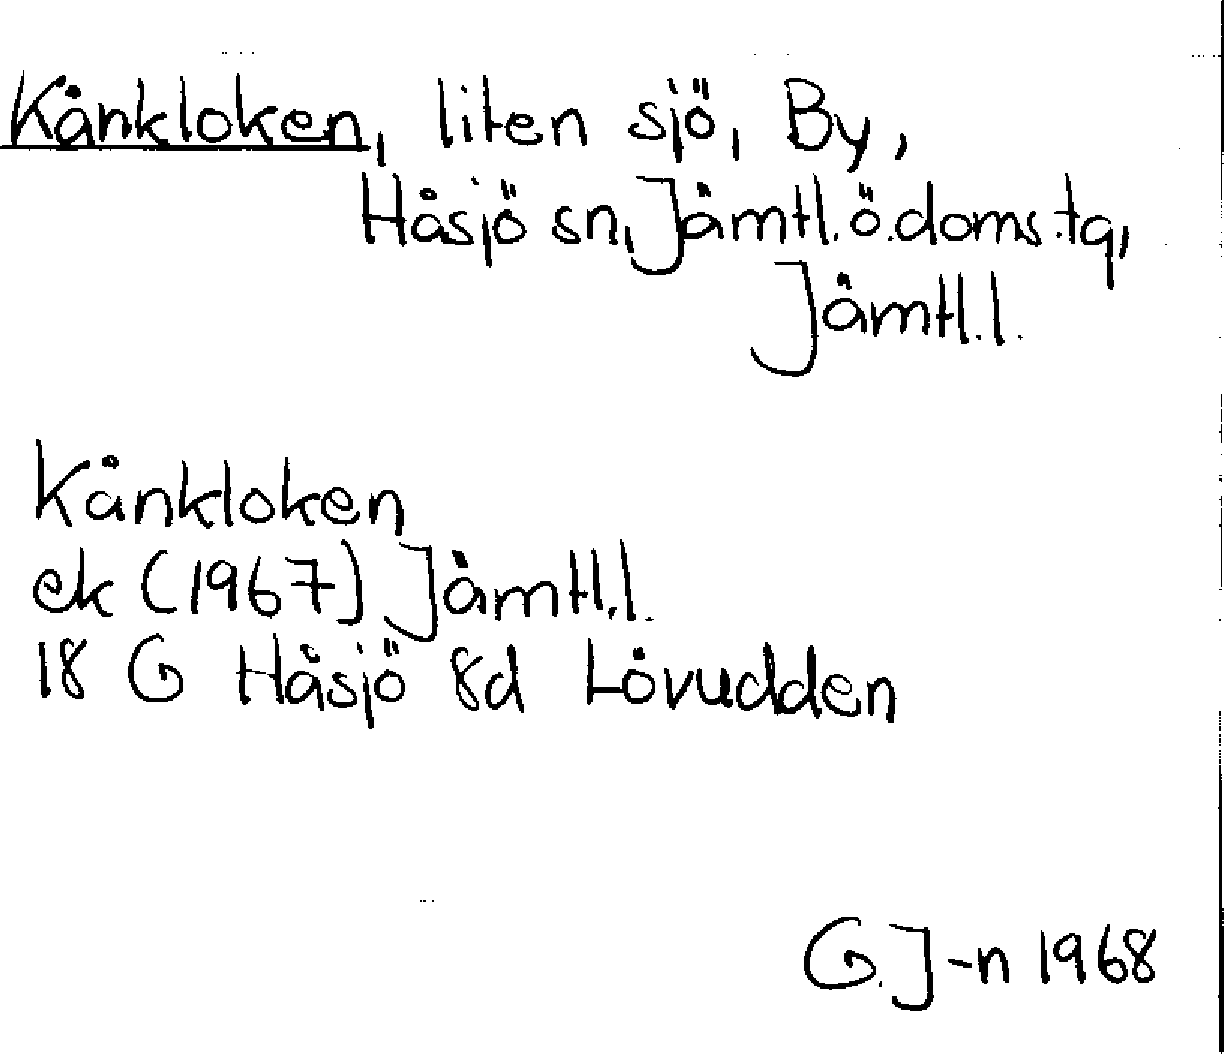 Kånkloken, liten sjö, By,
Håsjö sn, Jämtl. ö. doms. tg,
Jämtl. l.
Kånkloken
ek (1967) Jämtl. l.
18 G Håsjö 8d Lövudden
G. J-n 1968